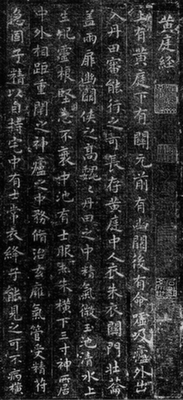 黃庭經
上有黃庭下有關元前有幽闕後有命嘘吸廬外出
入丹田審能行之可長存黃庭中人衣朱衣關門壯籥
蓋兩扉幽闕俠之高魏魏丹田之中精氣微玉池清水上
生肥靈根堅志不衰中池有士服赤朱橫下三寸神所居
中外相距重閉之神廬之中務脩治玄廱氣管受精符
急固子精以自持宅中有士常衣絳子能見之可不病橫